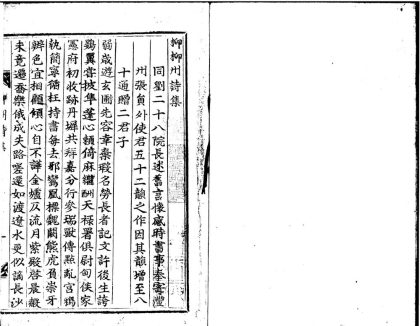 柳柳州詩集
同劉二十八院長述舊言懷感時書事奉寄澧
州張員外使君五十二韻之作因其韻增至八
十通贈二君子
弱歲遊玄圃先容幸棄瑕名勞長者記文許後生誇
鷃翼嘗披隼蓬心類倚麻繼酬天祿署俱尉甸侯家
憲府初收跡丹墀共拜嘉分行參瑞獸傳點亂宮鴉
執簡寧循枉持書每去邪鸞鳳標魏闕熊虎負崇牙
辨色宜相顧傾心自不譁金爐仄流月紫殿啓晨霞
未竟遷喬樂俄成失路嗟還如渡遼水更似謫長沙